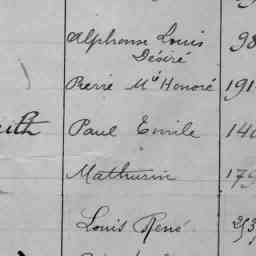 Alphonse Louis 98
Désiré
Pierre Mie Honoré 191
eith Paul Emile 140
Mathurin 179
Louis René 253